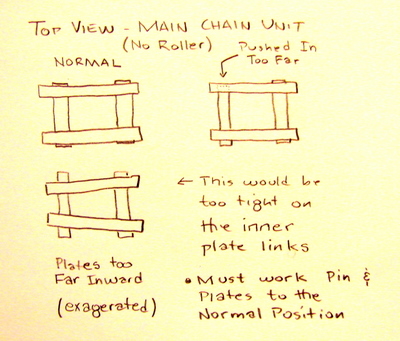 Top View - Main Chain Unit
(No Roller)
Normal
Pushed In
Too Far
← This would be
too tight on
the inner
plate links
Plates too
Far Inward
(exagerated)
• Must work Pin &
Plates to the
Normal Position